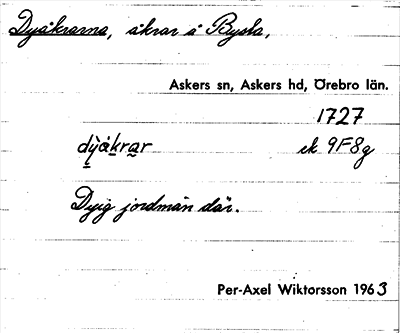 Dyåkrarna, åkrar å Bysta,
Askers sn, Askers hd, Örebro län.
1727
dỳ̱åḵra̰r ek 9F8g
Dyig jordmån där.
Per-Axel Wiktorsson 1963